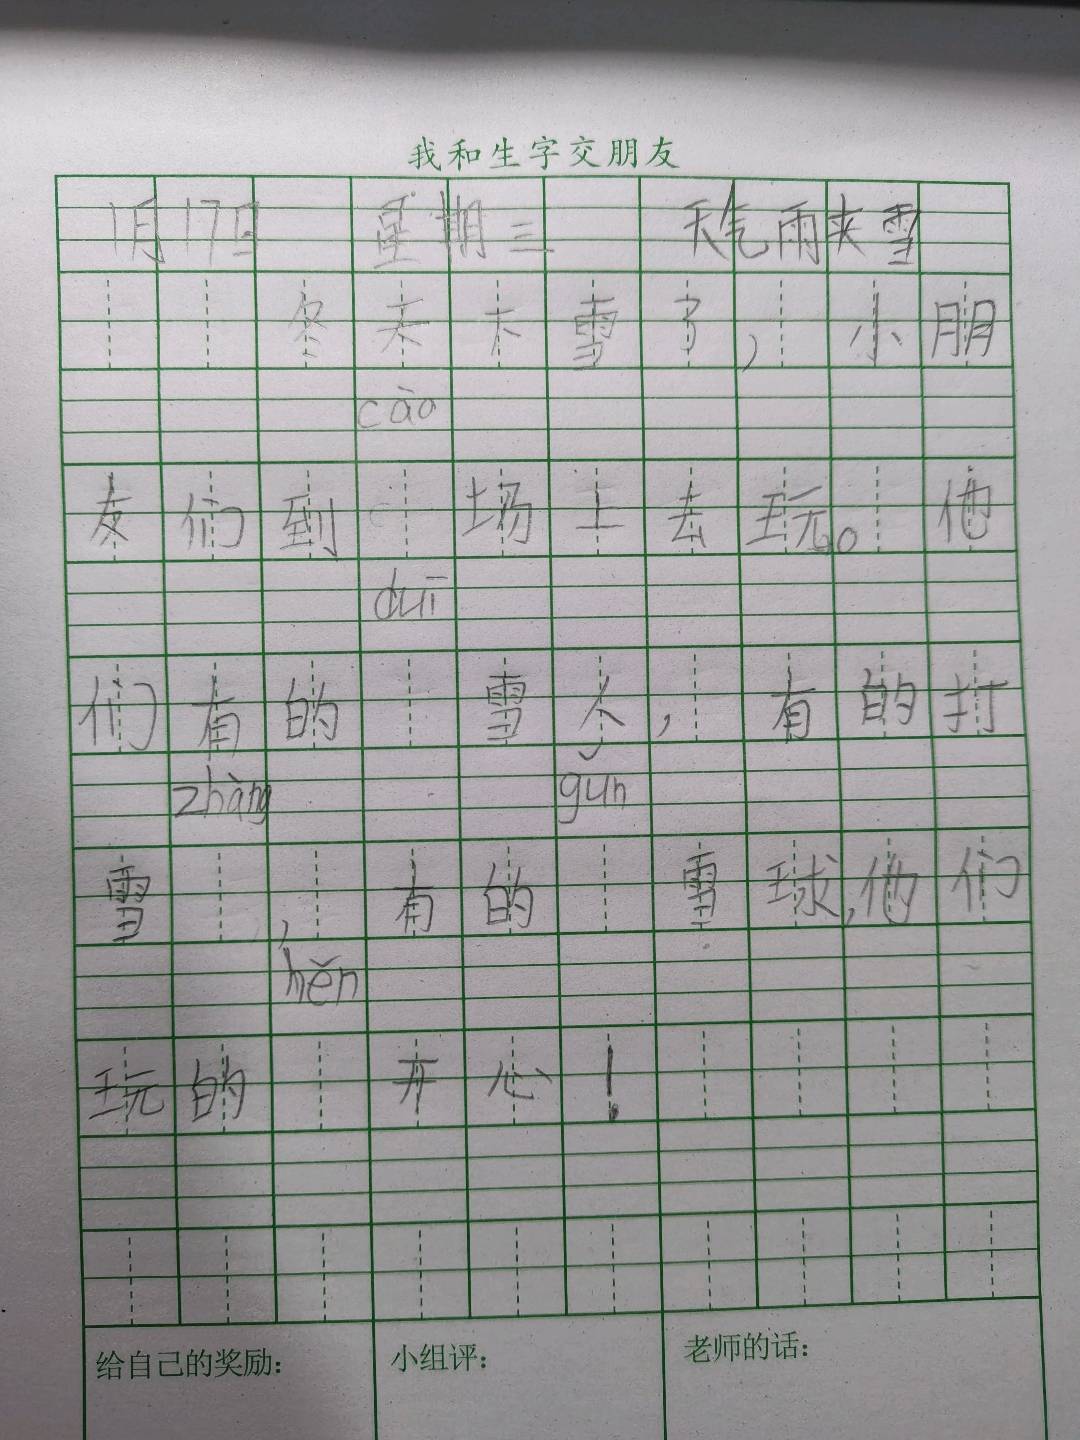 我和生字交朋友
1月17日 星期三 天气雨夹雪
冬天下雪了，小朋
cāo
友们到 场上去玩。他
duī
们有的 雪人，有的打
zhàng gǔn
雪 ，有的 雪球，他们
hěn
玩的 开心！
给自己的奖励： 小组评： 老师的话：